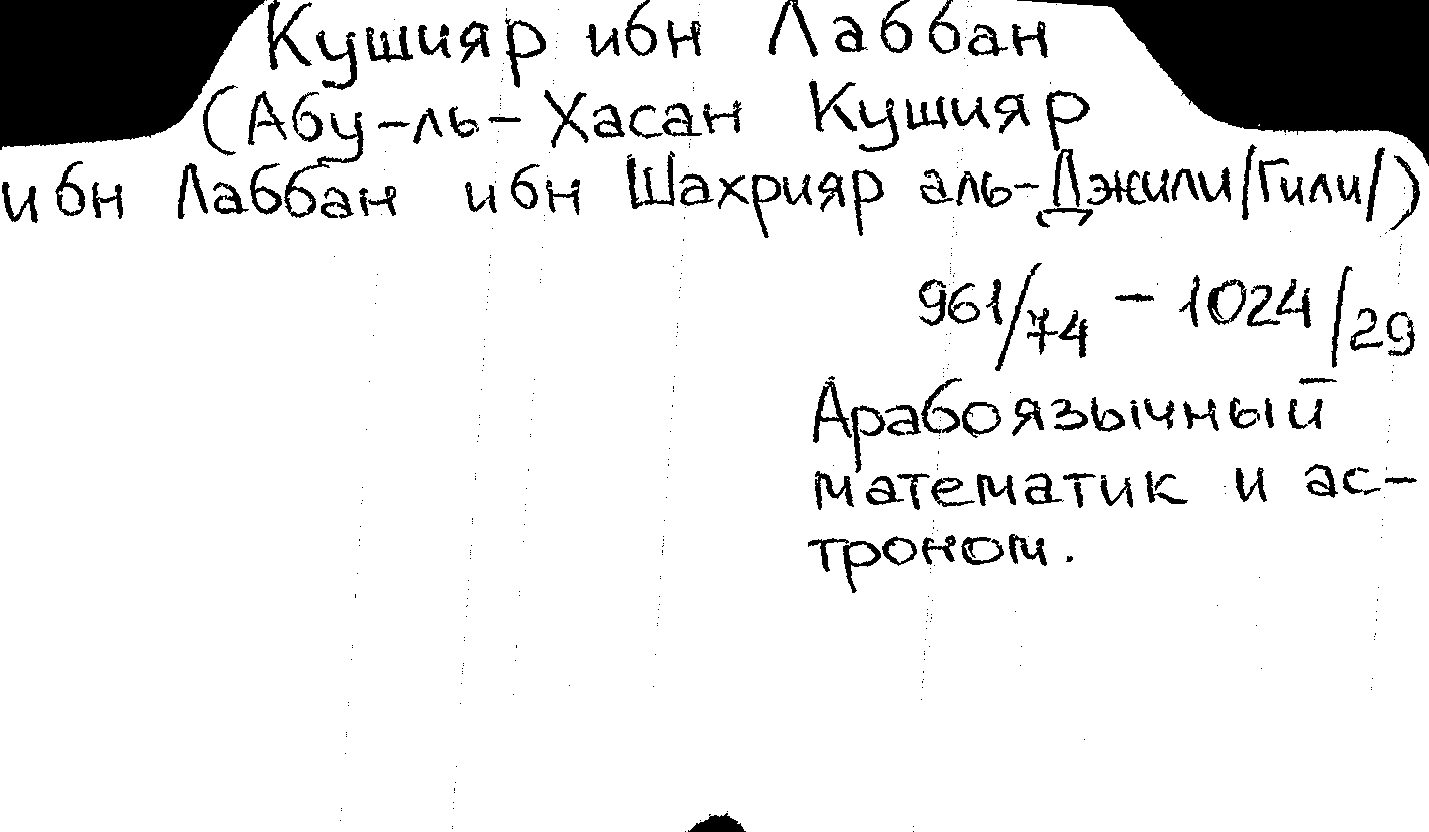 Кушияр ибн Лаббан
(Абу-ль-Хасан Кушияр
ибн Лаббан ибн Шахрияр аль-Джили/Гили/)
961/74 - 1024/29
Арабоязычный
математик и ас-
троном.